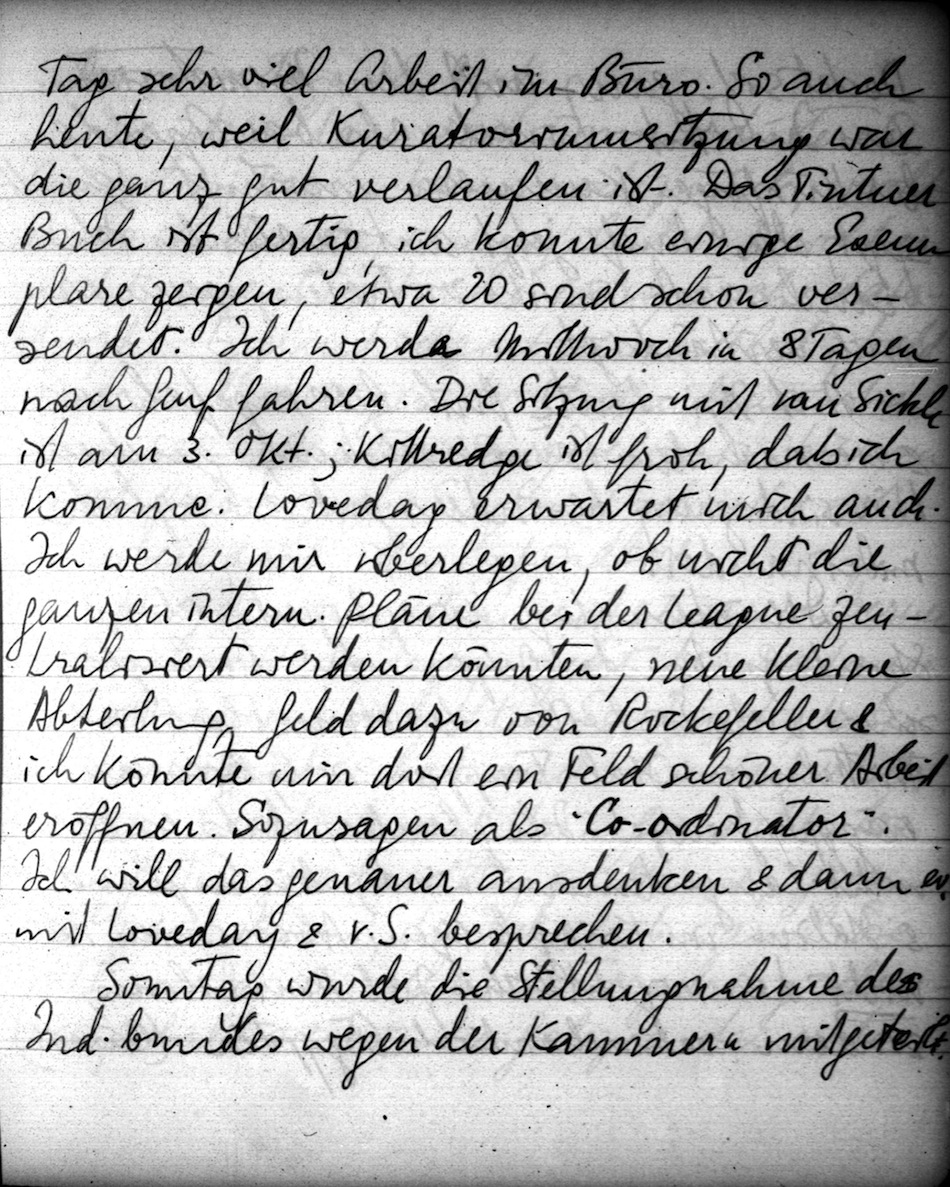 Tag sehr viel Arbeit im Büro. So auch
heute, weil Kuratoriumsitzung war
die ganz gut verlaufen ist. Das Tintner
Buch ist fertig, ich konnte einige Exem
plare zeigen, etwa 20 sind schon ver-
sendet. Ich werde Mittwoch in 8 Tagen
nach Genf fahren. Die Sitzung mit van Sickle
ist am 3. Okt.; Kittredge ist froh, dass ich
komme. Loveday erwartet mich auch.
Ich werde mir überlegen, ob nicht die
ganzen intern. Pläne bei der League zen-
tralisiert werden könnten, neue kleine
Abteilung, Geld dazu von Rockefeller &
ich könnte mir dort ein Feld schöner Arbeit
eröffnen. Sozusagen als "Co-ordinator".
Ich will das genauer ausdenken & dann ev.
mit Loveday & v.S. besprechen.
Sonntag wurde die Stellungnahme des
Ind. bundes wegen der Kammern mitgeteilt.